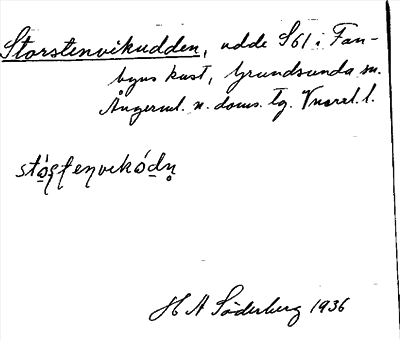 Storstenvikudden, udde S61 i Fan-
byns kust, Grundsunda sn.
Ångerml. n. doms. tg. Vnorrl. l.
stós̩tenvekódn̥
H A Söderberg 1936